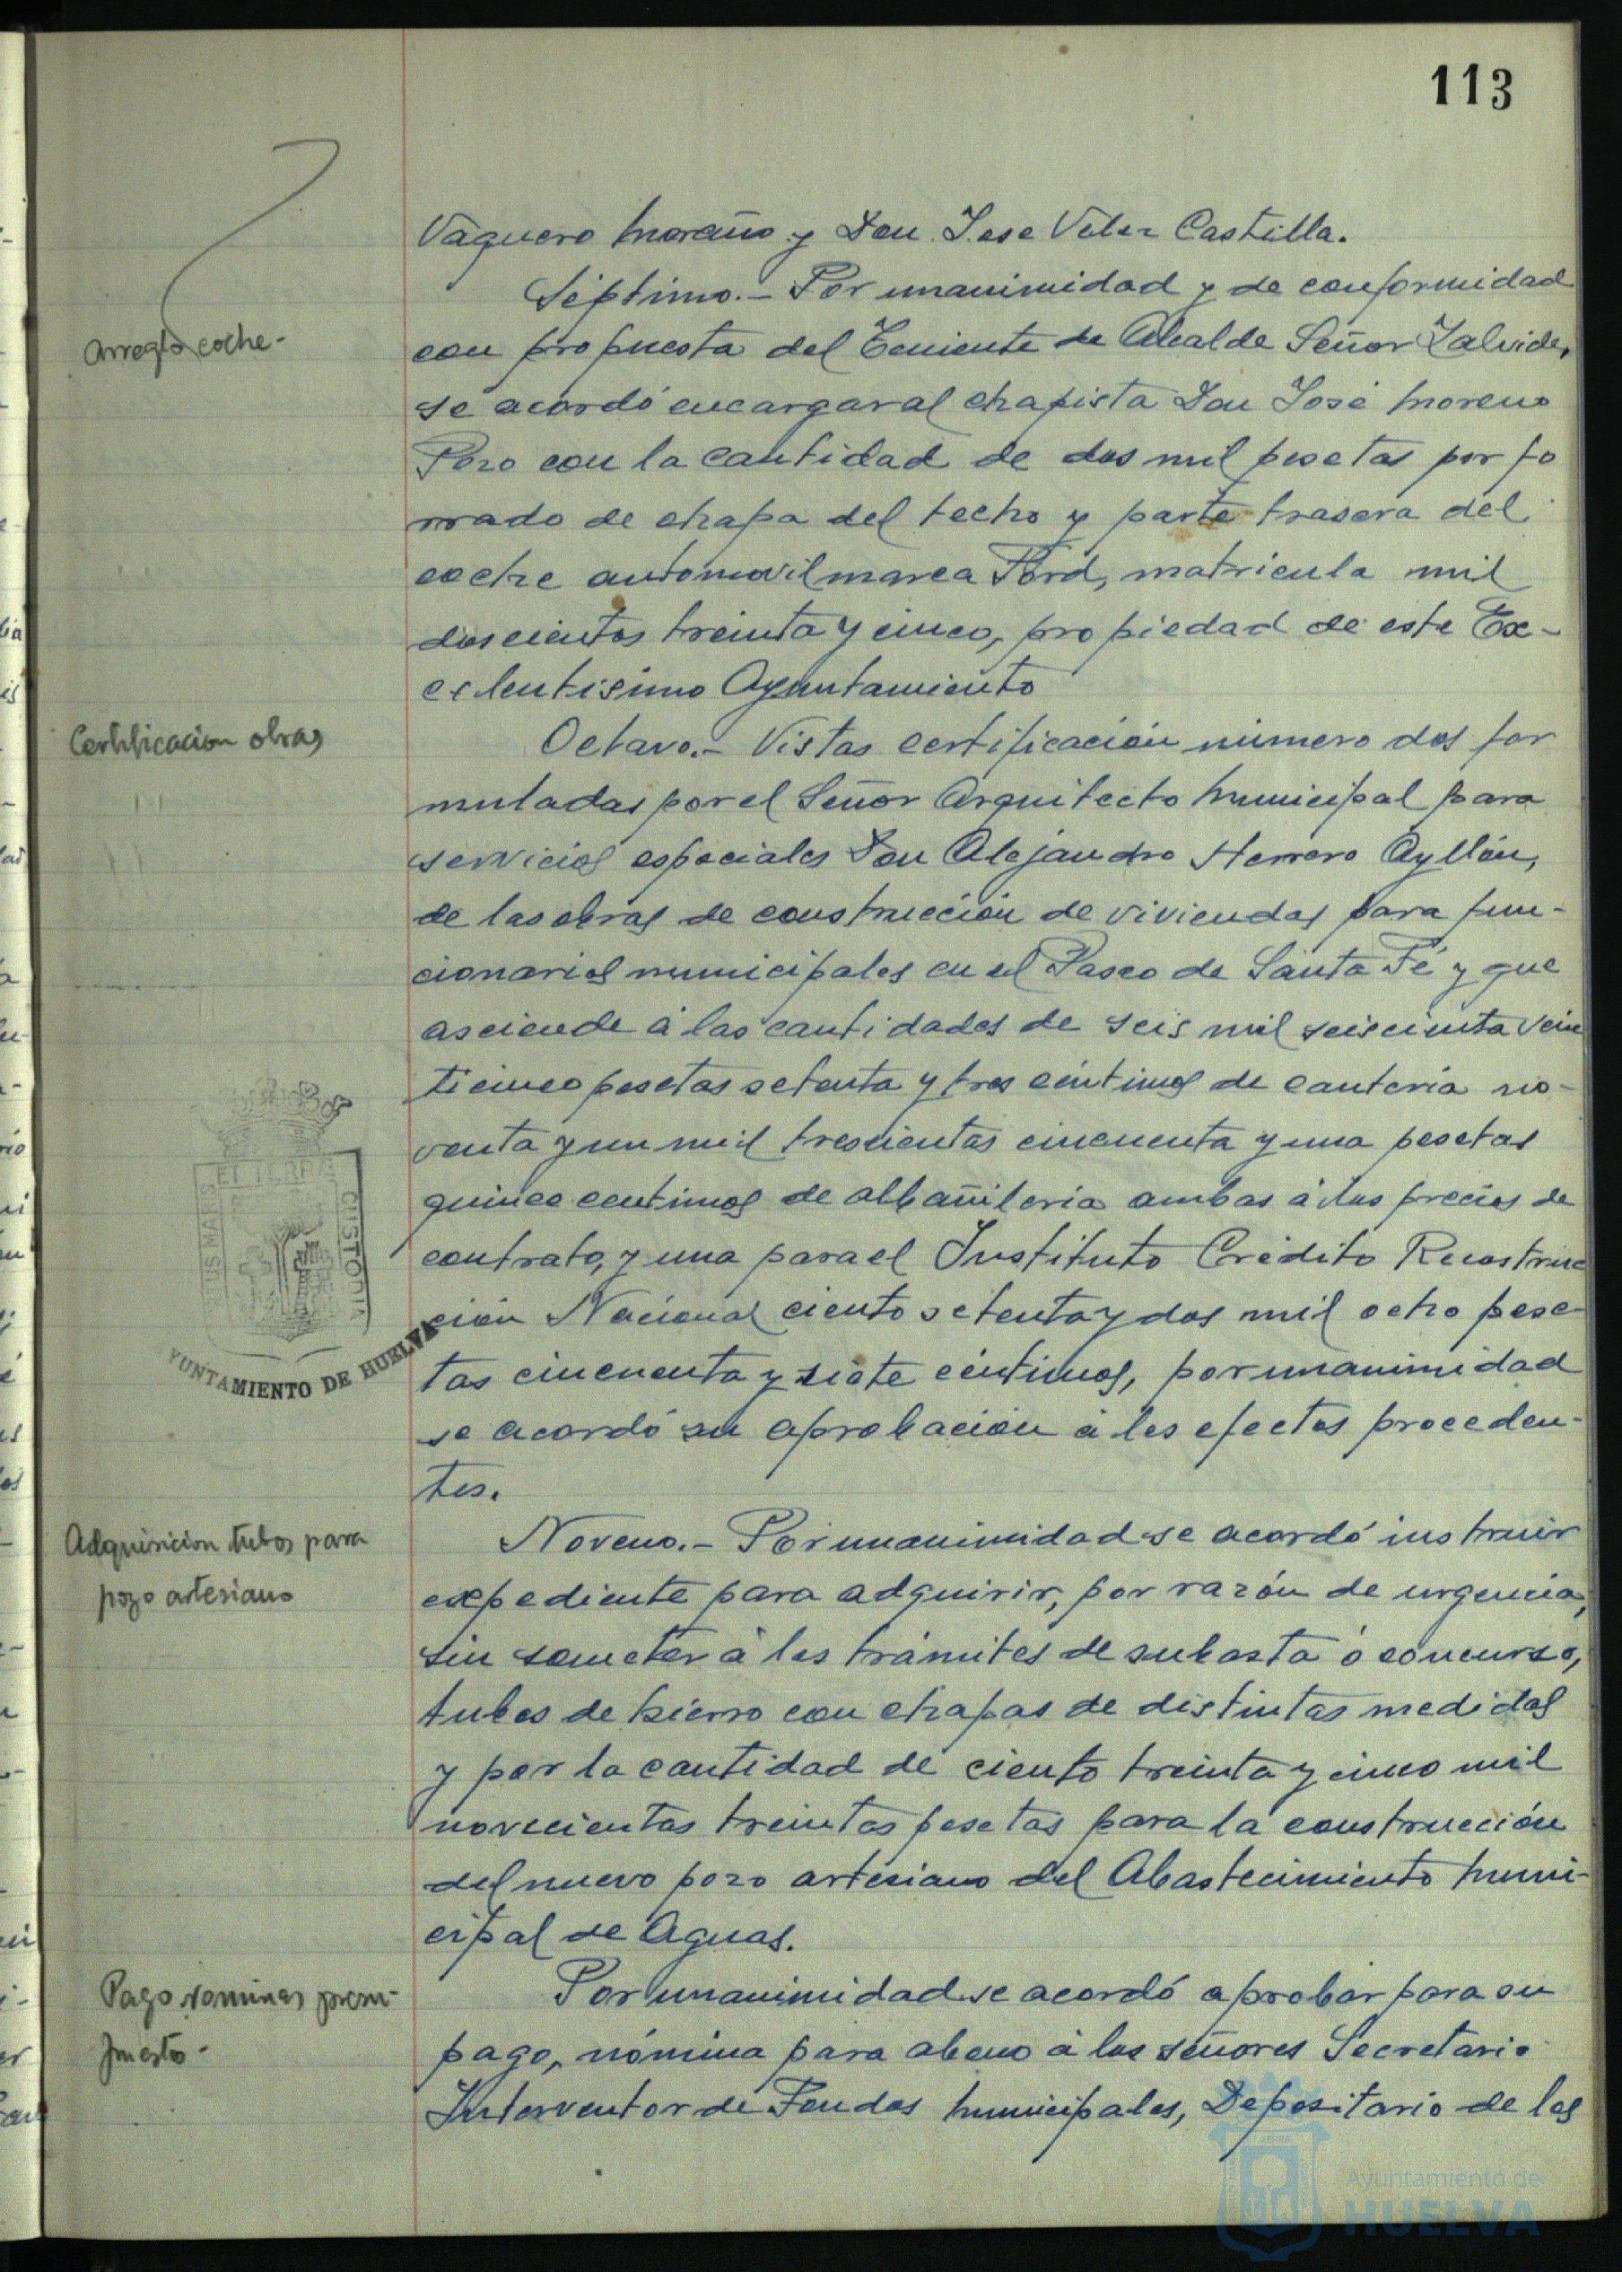 113
Vaquero Moraño y Don José Velez Castilla.
arreglo coche -
Séptimo.- Por unanimidad y de conformidad
con propuesta del Teniente de Alcalde Señor Zalvide,
se acordó encargar al chapista Don José Moreno
Pozo con la cantidad de dos mil pesetas por fo
rrado de chapa del techo y parte trasera del
coche automovil marca Ford, matricula mil
doscientos treinta y cinco, propiedad de este Ex-
celentisimo Ayuntamiento
Certificacion obras
Octavo.- Vistas certificación número dos for
muladas por el Señor Arquitecto Municipal para
servicios especiales Don Alejandro Herrero Ayllón,
de las obras de construcción de viviendas para fun-
cionarios municipales en el Paseo de Santa Fé y que
asciende á las cantidades de seis mil seiscienta vein
ticinco pesetas setenta y tres céntimos de cantería no-
venta y un mil trescientas cincuenta y una pesetas
quince centimos de albañileria ambas á los precios de
contrato, y una para el Instituto Crédito Recostruc
ción Nacional ciento setenta y dos mil ocho pese-
tas cincuenta y siete céntimos, por unanimidad
se acordó su aprobación á los efectos proceden-
tes.
PORTUS MARIS
ET TERRÆ
CUSTODIA
YUNTAMIENTO DE HUELVA
Adquisicion tubos para
pozo artesiano
Noveno.- Por unanimidad se acordó instruir
expediente para adquirir, por razón de urgencia,
sin someter á los trámites de subasta ó concurso,
tubos de hierro con chapas de distintas medidas
y por la cantidad de ciento treinta y cinco mil
novecientas treintas pesetas para la construcción
del nuevo pozo artesiano del Abastecimiento Muni-
cipal de Aguas.
Pago nominas presu-
puesto -
Por unanimidad se acordó aprobar para su
pago, nómina para abono á los señores Secretario
Interventor de Fondos Municipales, Depositario de los
Ayuntamiento de
HUELVA